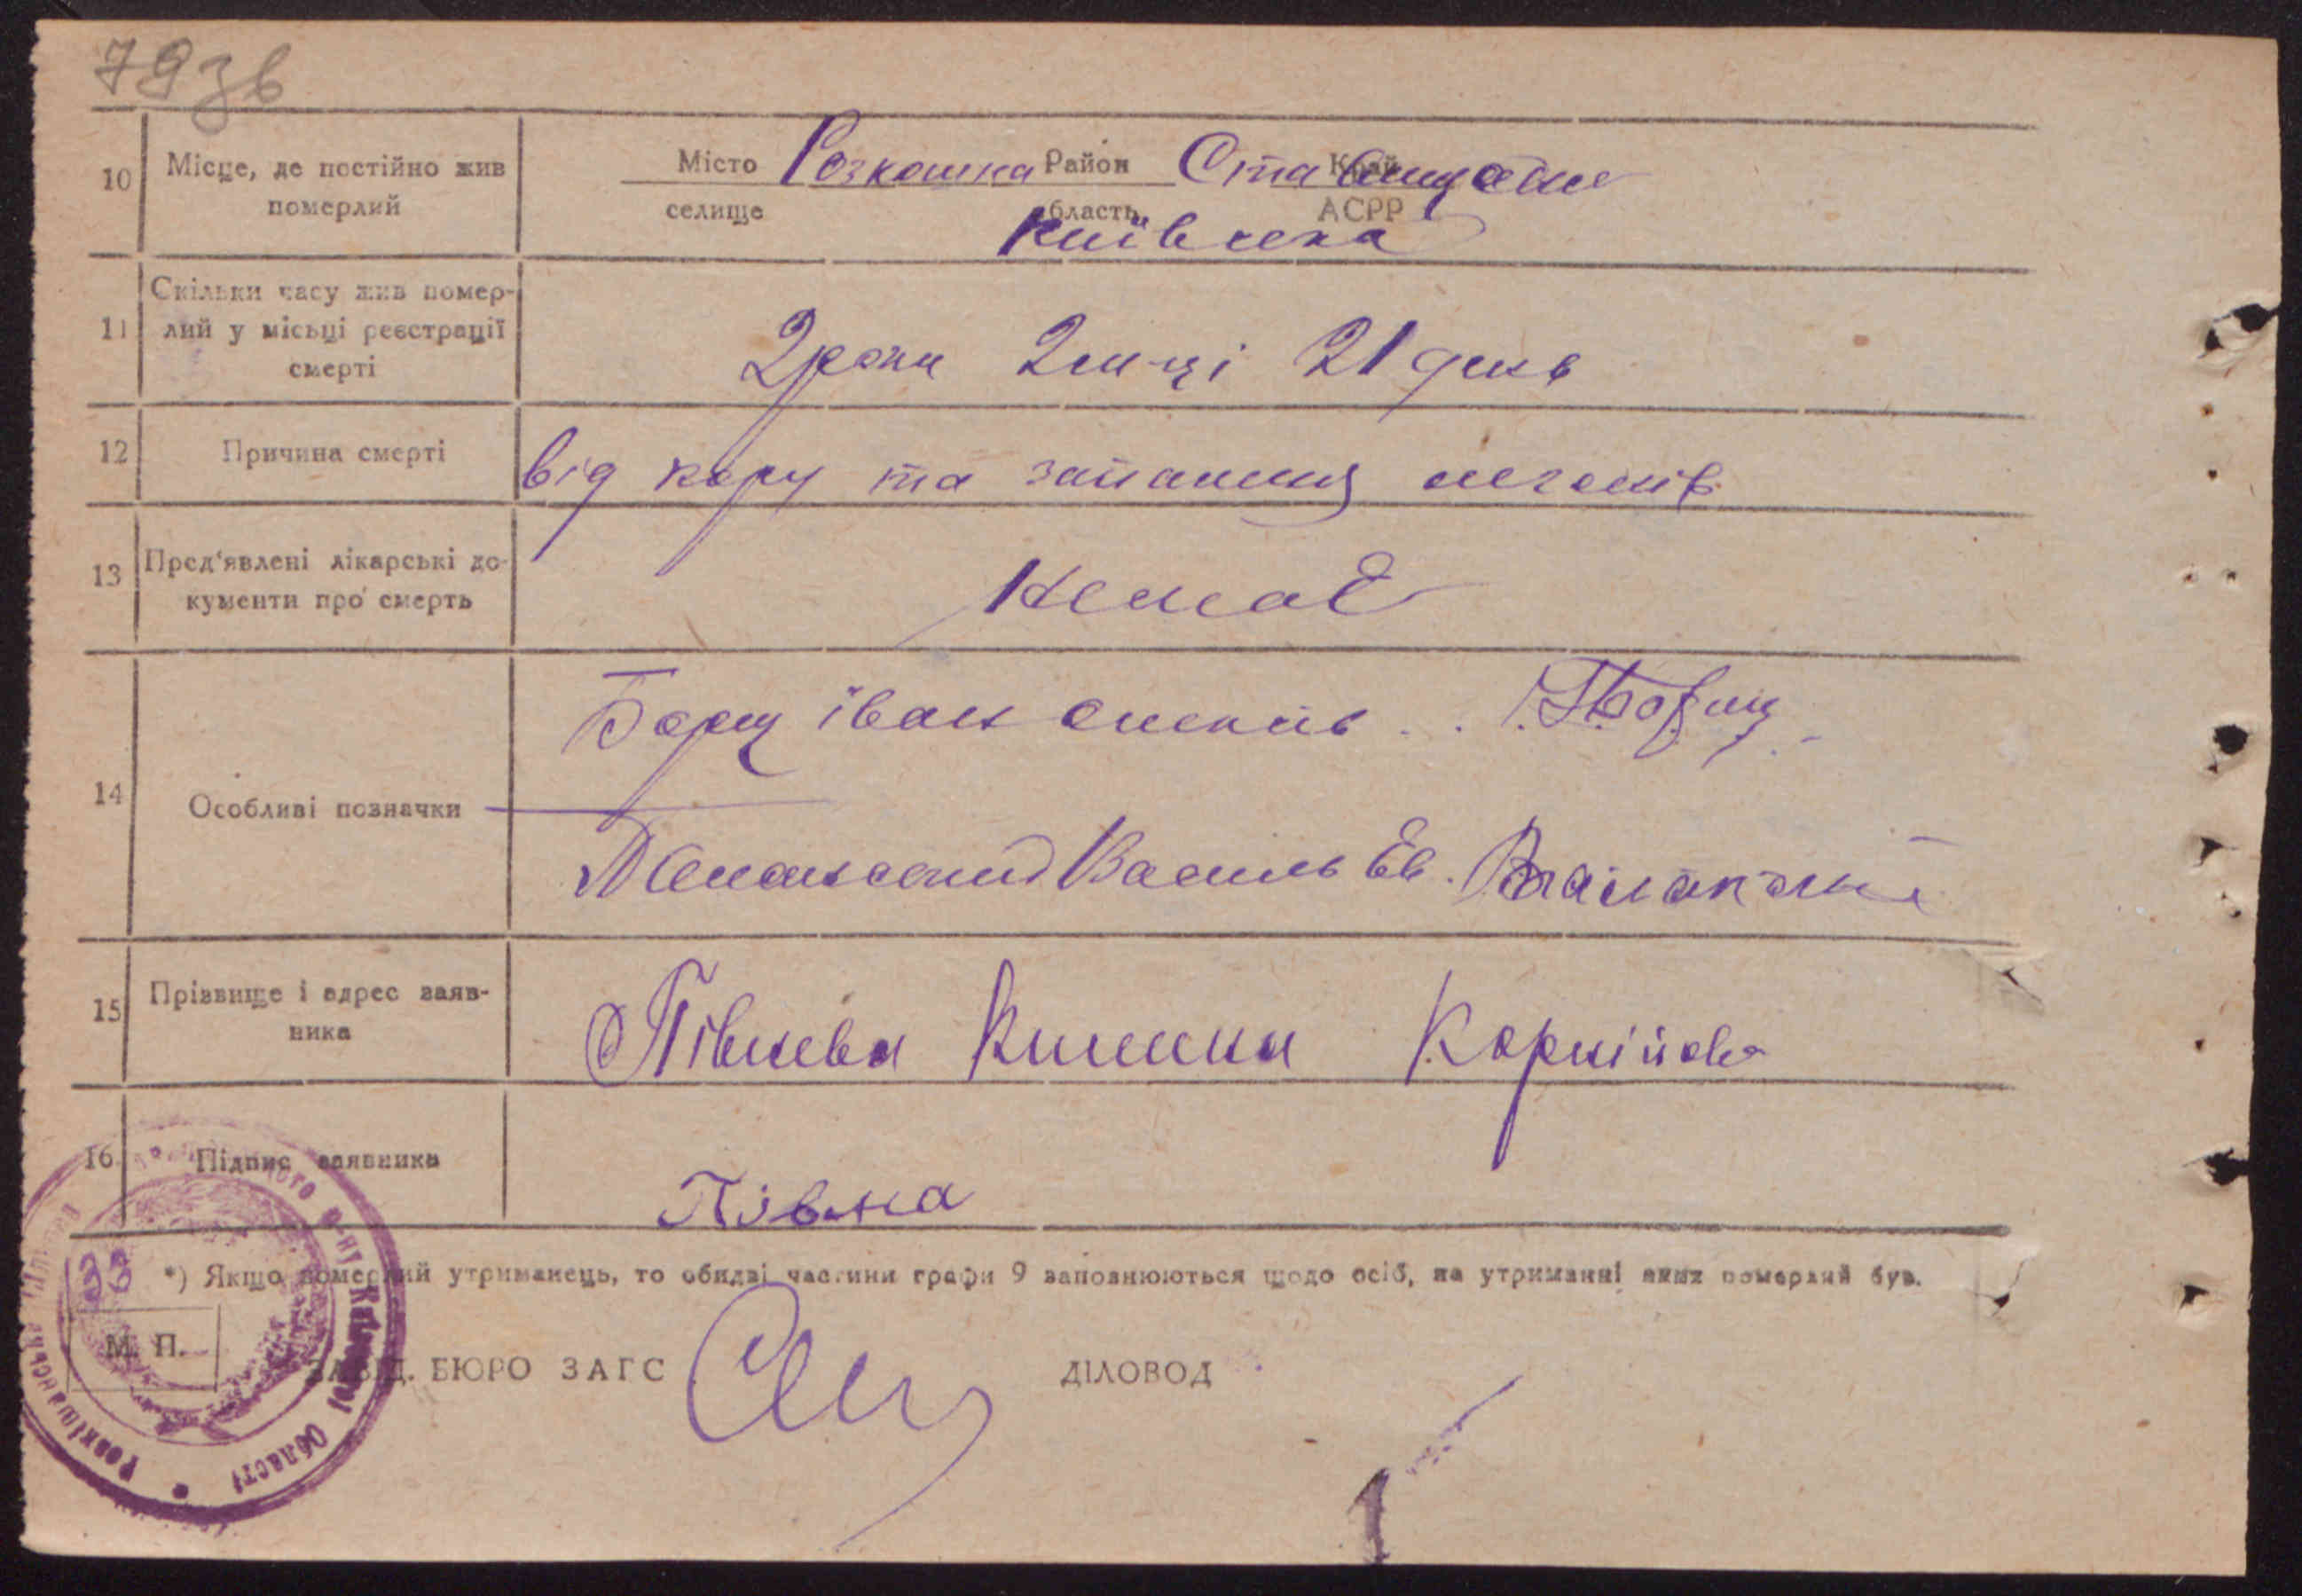 79зв
10 Місце, де постійно жив померлий
Місто Розкошна Район Ставищане Край
селище область АСРР
Київська
11 Скільки часу жив помер-
лий у місьці реєстрації
смерті
2 роки 2 м-ці 21 день
12 Причина смерті від кору та запалення легенів
13 Пред'явлені лікарські до-
кументи про смерть
Немає
14 Особливі позначки
Борщ іван . . Борщ
Василь Єв.
15 Прізвище і адрес заяв-
ника
Півнева Корнійовна
16. Підпис заявника
Півна
*) Якщо померлий утриманець, то обидві частини графи 9 заповнюються щодо осіб, на утриманні яких померлий був.
М. П.
ЗАВІД. БЮРО ЗАГС ДІЛОВОД
Київської Області